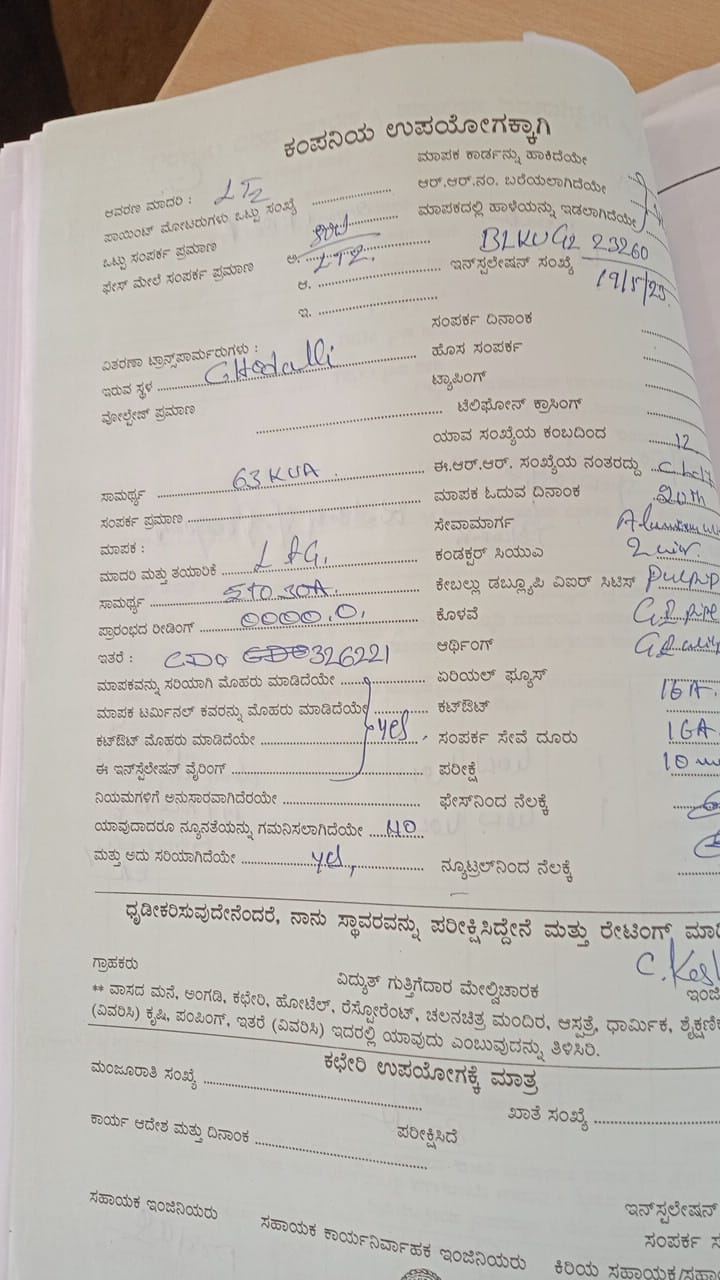 ಕಂಪನಿಯ ಉಪಯೋಗಕ್ಕಾಗಿ
ಮಾಪಕ ಕಾರ್ಡನ್ನು ಹಾಕಿದೆಯೇ
ಆವರಣ ಮಾದರಿ : LT2 ಆರ್.ಆರ್.ನಂ. ಬರೆಯಲಾಗಿದೆಯೇ
ಪಾಯಿಂಟ್ ಮೋಟರುಗಳು ಒಟ್ಟು ಸಂಖ್ಯೆ ಮಾಪಕದಲ್ಲಿ ಹಾಳೆಯನ್ನು ಇಡಲಾಗಿದೆಯೇ
ಒಟ್ಟು ಸಂಪರ್ಕ ಪ್ರಮಾಣ BLKUG2 23260
ಫೇಸ್ ಮೇಲೆ ಸಂಪರ್ಕ ಪ್ರಮಾಣ ಅ. LT2. ಇನ್‌ಸ್ಟಲೇಷನ್ ಸಂಖ್ಯೆ 19/5/23
ಆ.
ಇ.
ಸಂಪರ್ಕ ದಿನಾಂಕ
ವಿತರಣಾ ಟ್ರಾನ್ಸ್‌ಪಾರ್ಮರುಗಳು : ಹೊಸ ಸಂಪರ್ಕ
ಇರುವ ಸ್ಥಳ ಟ್ಯಾಪಿಂಗ್
ವೋಲ್ಟೇಜ್ ಪ್ರಮಾಣ ಟೆಲಿಫೋನ್ ಕ್ರಾಸಿಂಗ್
ಯಾವ ಸಂಖ್ಯೆಯ ಕಂಬದಿಂದ 12
ಸಾಮರ್ಥ್ಯ 63 KVA ಈ.ಆರ್.ಆರ್. ಸಂಖ್ಯೆಯ ನಂತರದ್ದು
ಸಂಪರ್ಕ ಪ್ರಮಾಣ ಮಾಪಕ ಓದುವ ದಿನಾಂಕ 20th
ಮಾಪಕ : ಸೇವಾಮಾರ್ಗ
ಮಾದರಿ ಮತ್ತು ತಯಾರಿಕೆ L &G. ಕಂಡಕ್ಟರ್ ಸಿಯುಎ
ಸಾಮರ್ಥ್ಯ 5 TO 30A. ಕೇಬಲ್ಲು ಡಬ್ಲ್ಯೂಪಿ ಎಐರ್ ಸಿಟಿಸ್
ಪ್ರಾರಂಭದ ರೀಡಿಂಗ್ 0000.0. ಕೊಳವೆ G.I. pipe
ಇತರೆ : 326221 ಆರ್ಥಿಂಗ್
ಮಾಪಕವನ್ನು ಸರಿಯಾಗಿ ಮೊಹರು ಮಾಡಿದೆಯೇ ಏರಿಯಲ್ ಫ್ಯೂಸ್
ಮಾಪಕ ಟರ್ಮಿನಲ್ ಕವರನ್ನು ಮೊಹರು ಮಾಡಿದೆಯೇ ಕಟ್‌ಔಟ್ 16 A.
ಕಟ್‌ಔಟ್ ಮೊಹರು ಮಾಡಿದೆಯೇ yes ಸಂಪರ್ಕ ಸೇವೆ ದೂರು 16A.
ಈ ಇನ್‌ಸ್ಟೆಲೇಷನ್ ವೈರಿಂಗ್ ಪರೀಕ್ಷೆ
ನಿಯಮಗಳಿಗೆ ಅನುಸಾರವಾಗಿದೆರಯೇ ಫೇಸ್‌ನಿಂದ ನೆಲಕ್ಕೆ
ಯಾವುದಾದರೂ ನ್ಯೂನತೆಯನ್ನು ಗಮನಿಸಲಾಗಿದೆಯೇ NO
ಮತ್ತು ಅದು ಸರಿಯಾಗಿದೆಯೇ yes, ನ್ಯೂಟ್ರಲ್‌ನಿಂದ ನೆಲಕ್ಕೆ
ಧೃಡೀಕರಿಸುವುದೇನೆಂದರೆ, ನಾನು ಸ್ಥಾವರವನ್ನು ಪರೀಕ್ಷಿಸಿದ್ದೇನೆ ಮತ್ತು ರೇಟಿಂಗ್
ಗ್ರಾಹಕರು ವಿದ್ಯುತ್ ಗುತ್ತಿಗೆದಾರ ಮೇಲ್ವಿಚಾರಕ
** ವಾಸದ ಮನೆ, ಅಂಗಡಿ, ಕಛೇರಿ, ಹೋಟೆಲ್, ರೆಸ್ಟೋರೆಂಟ್, ಚಲನಚಿತ್ರ ಮಂದಿರ, ಆಸ್ಪತ್ರೆ, ಧಾರ್ಮಿಕ,
(ವಿವರಿಸಿ) ಕೃಷಿ, ಪಂಪಿಂಗ್, ಇತರೆ (ವಿವರಿಸಿ) ಇದರಲ್ಲಿ ಯಾವುದು ಎಂಬುವುದನ್ನು ತಿಳಿಸಿರಿ.
ಕಛೇರಿ ಉಪಯೋಗಕ್ಕೆ ಮಾತ್ರ
ಮಂಜೂರಾತಿ ಸಂಖ್ಯೆ ಖಾತೆ ಸಂಖ್ಯೆ
ಕಾರ್ಯ ಆದೇಶ ಮತ್ತು ದಿನಾಂಕ ಪರೀಕ್ಷಿಸಿದೆ
ಇನ್‌ಸ್ಟಲೇಷನ್
ಸಹಾಯಕ ಇಂಜಿನಿಯರು ಸಹಾಯಕ ಕಾರ್ಯನಿರ್ವಾಹಕ ಇಂಜಿನಿಯರು ಸಂಪರ್ಕ
ಕಿರಿಯ